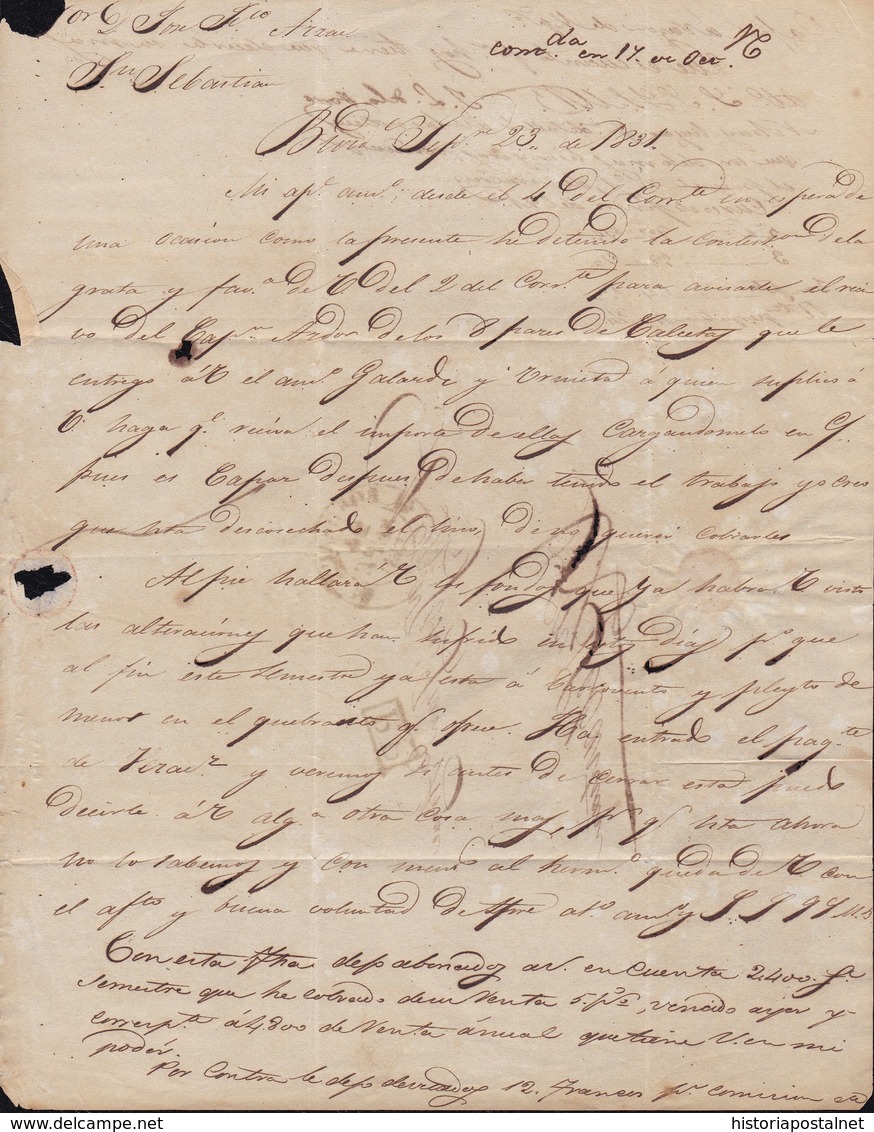 or D. Jose Fco Arzac
Sn Sebastian
contda en 17. de Oct.
Sepre 23,, de 1831.
Mi apo amo; desde el 4 del Corrte en espera de
una ocasion como la presente he detenido la contestaon de la
grata y fava de V del 2 del Corrte para avisarle el reci
vo del Capn de los 8 pares de Calcetas que le
entregó á V el amo Galarde y Urmieta á quien suplico á
V haga qe reciva el importe de ellas cargandomelo en C/
pues es despues de haber tenido el trabajo yo creo
que hasta el lino, de no querer cobrarles
Al pie hallará V los fondos que ya habrá V visto
las alteraciones que han sufrido en estos dias pr que
al fin este semestre ya está á y pleyto de
menos en el quebranto qe ofrece. Ha entrado el paqte
de Veracz y veremos si antes de cerrar esta puedo
decirle á V alga otra cosa mas, pr qe hasta ahora
no lo sabemos y con menos al hermo queda de V con
el afto y buena voluntad de spre amo y S S Q S M B
Con esta fha dejo abonados a V. en Cuenta 2.400. fs
semestre que he cobrado de su Renta 5. p%, vencido ayer y
correspte á 4.800 de Renta ánual que tiene V. en mi
podér.
Por Contra le dejo devitados 12. Francos pr comision
historiapostalnet
www.delcampe.net
historiapostalnet